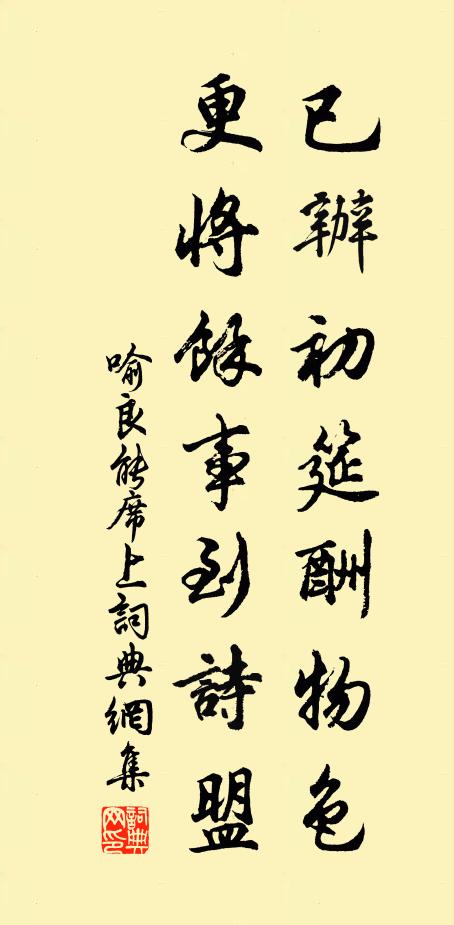 已辦初筵酬物色
更將餘事到詩盟
喻良能席上詞典網集
詞典网印